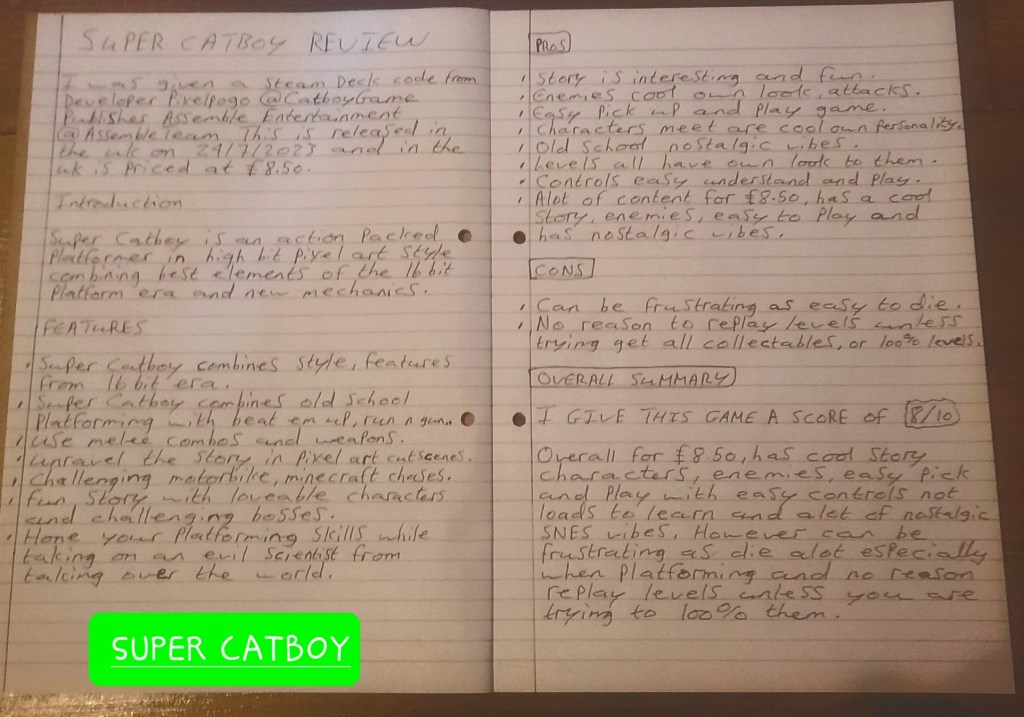 SUPER CATBOY REVIEW
I was given a Steam Deck code from
Developer Pixelpogo @CatboyGame
Publisher Assemble Entertainment
@AssembleTeam This is released in
the uk on 24/7/2023 and in the
uk is priced at £8.50.
Introduction
Super Catboy is an action packed
platformer in high bit pixel art style
combining best elements of the 16 bit
platform era and new mechanics.
FEATURES
• Super Catboy combines style, features
from 16 bit era.
• Super Catboy combines old school
platforming with beat em up, run n gun..
• Use melee combos and weapons.
• Unravel the story in pixel art cutscenes.
• Challenging motorbike, minecraft chases.
• Fun story with loveable characters
and challenging bosses.
• Hone your platforming skills while
taking on an evil scientist from
taking over the world.
SUPER CATBOY
PROS
• Story is interesting and fun.
• Enemies cool own look, attacks.
• Easy pick up and play game.
• Characters meet are cool own personality.
• Old school nostalgic vibes.
• Levels all have own look to them.
• Controls easy understand and play.
• Alot of content for £8.50, has a cool
story, enemies, easy to play and
has nostalgic vibes.
CONS
• Can be frustrating as easy to die.
• No reason to replay levels unless
trying get all collectables, or 100% levels.
OVERALL SUMMARY
I GIVE THIS GAME A SCORE OF 8/10
Overall for £8.50, has cool story
characters, enemies, easy pick
and play with easy controls not
loads to learn and alot of nostalgic
SNES vibes. However can be
frustrating as die alot especially
when platforming and no reason
replay levels unless you are
trying to 100% them.